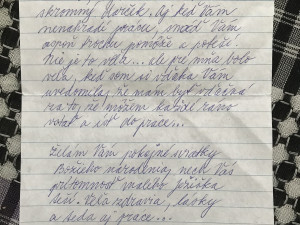 skromný darček. Aj keď Vám
nenahradí prácu, snáď Vám
aspoň trochu pomôže a poteší.
Nie je to veľa... ale pre mňa bolo
veľa, keď som si vďaka Vám
uvedomila, že mám byť vďačná
za to, že môžem každé ráno
vstať a ísť do práce...
Želám Vám pokojné sviatky
Božieho narodenia, nech Vás
prítomnosť malého Ježiška
Veľa zdravia, lásky
a teda aj práce...